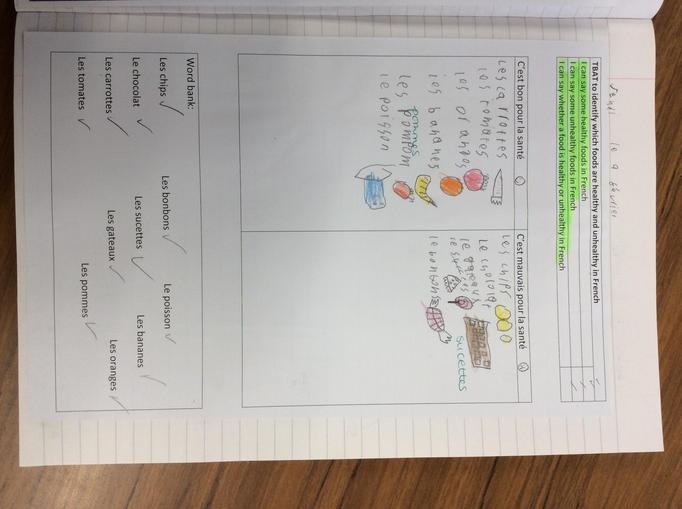 Jeudi le 9 février
TBAT to identify which foods are healthy and unhealthy in French
I can say some healthy foods in French
I can say some unhealthy foods in French
I can say whether a food is healthy or unhealthy in French
C'est bon pour la santé
Les carrottes
les tomates
les oranges
les bananes
pommes
Les pompom
le poisson
C'est mauvais pour la santé
Les chips
Le chocolat
le gateaux
le sucettes
sucettes
le bonbons
Word bank:
Les chips Les bonbons Le poisson
Le chocolat Les sucettes Les bananes
Les carrottes Les gateaux Les oranges
Les tomates Les pommes